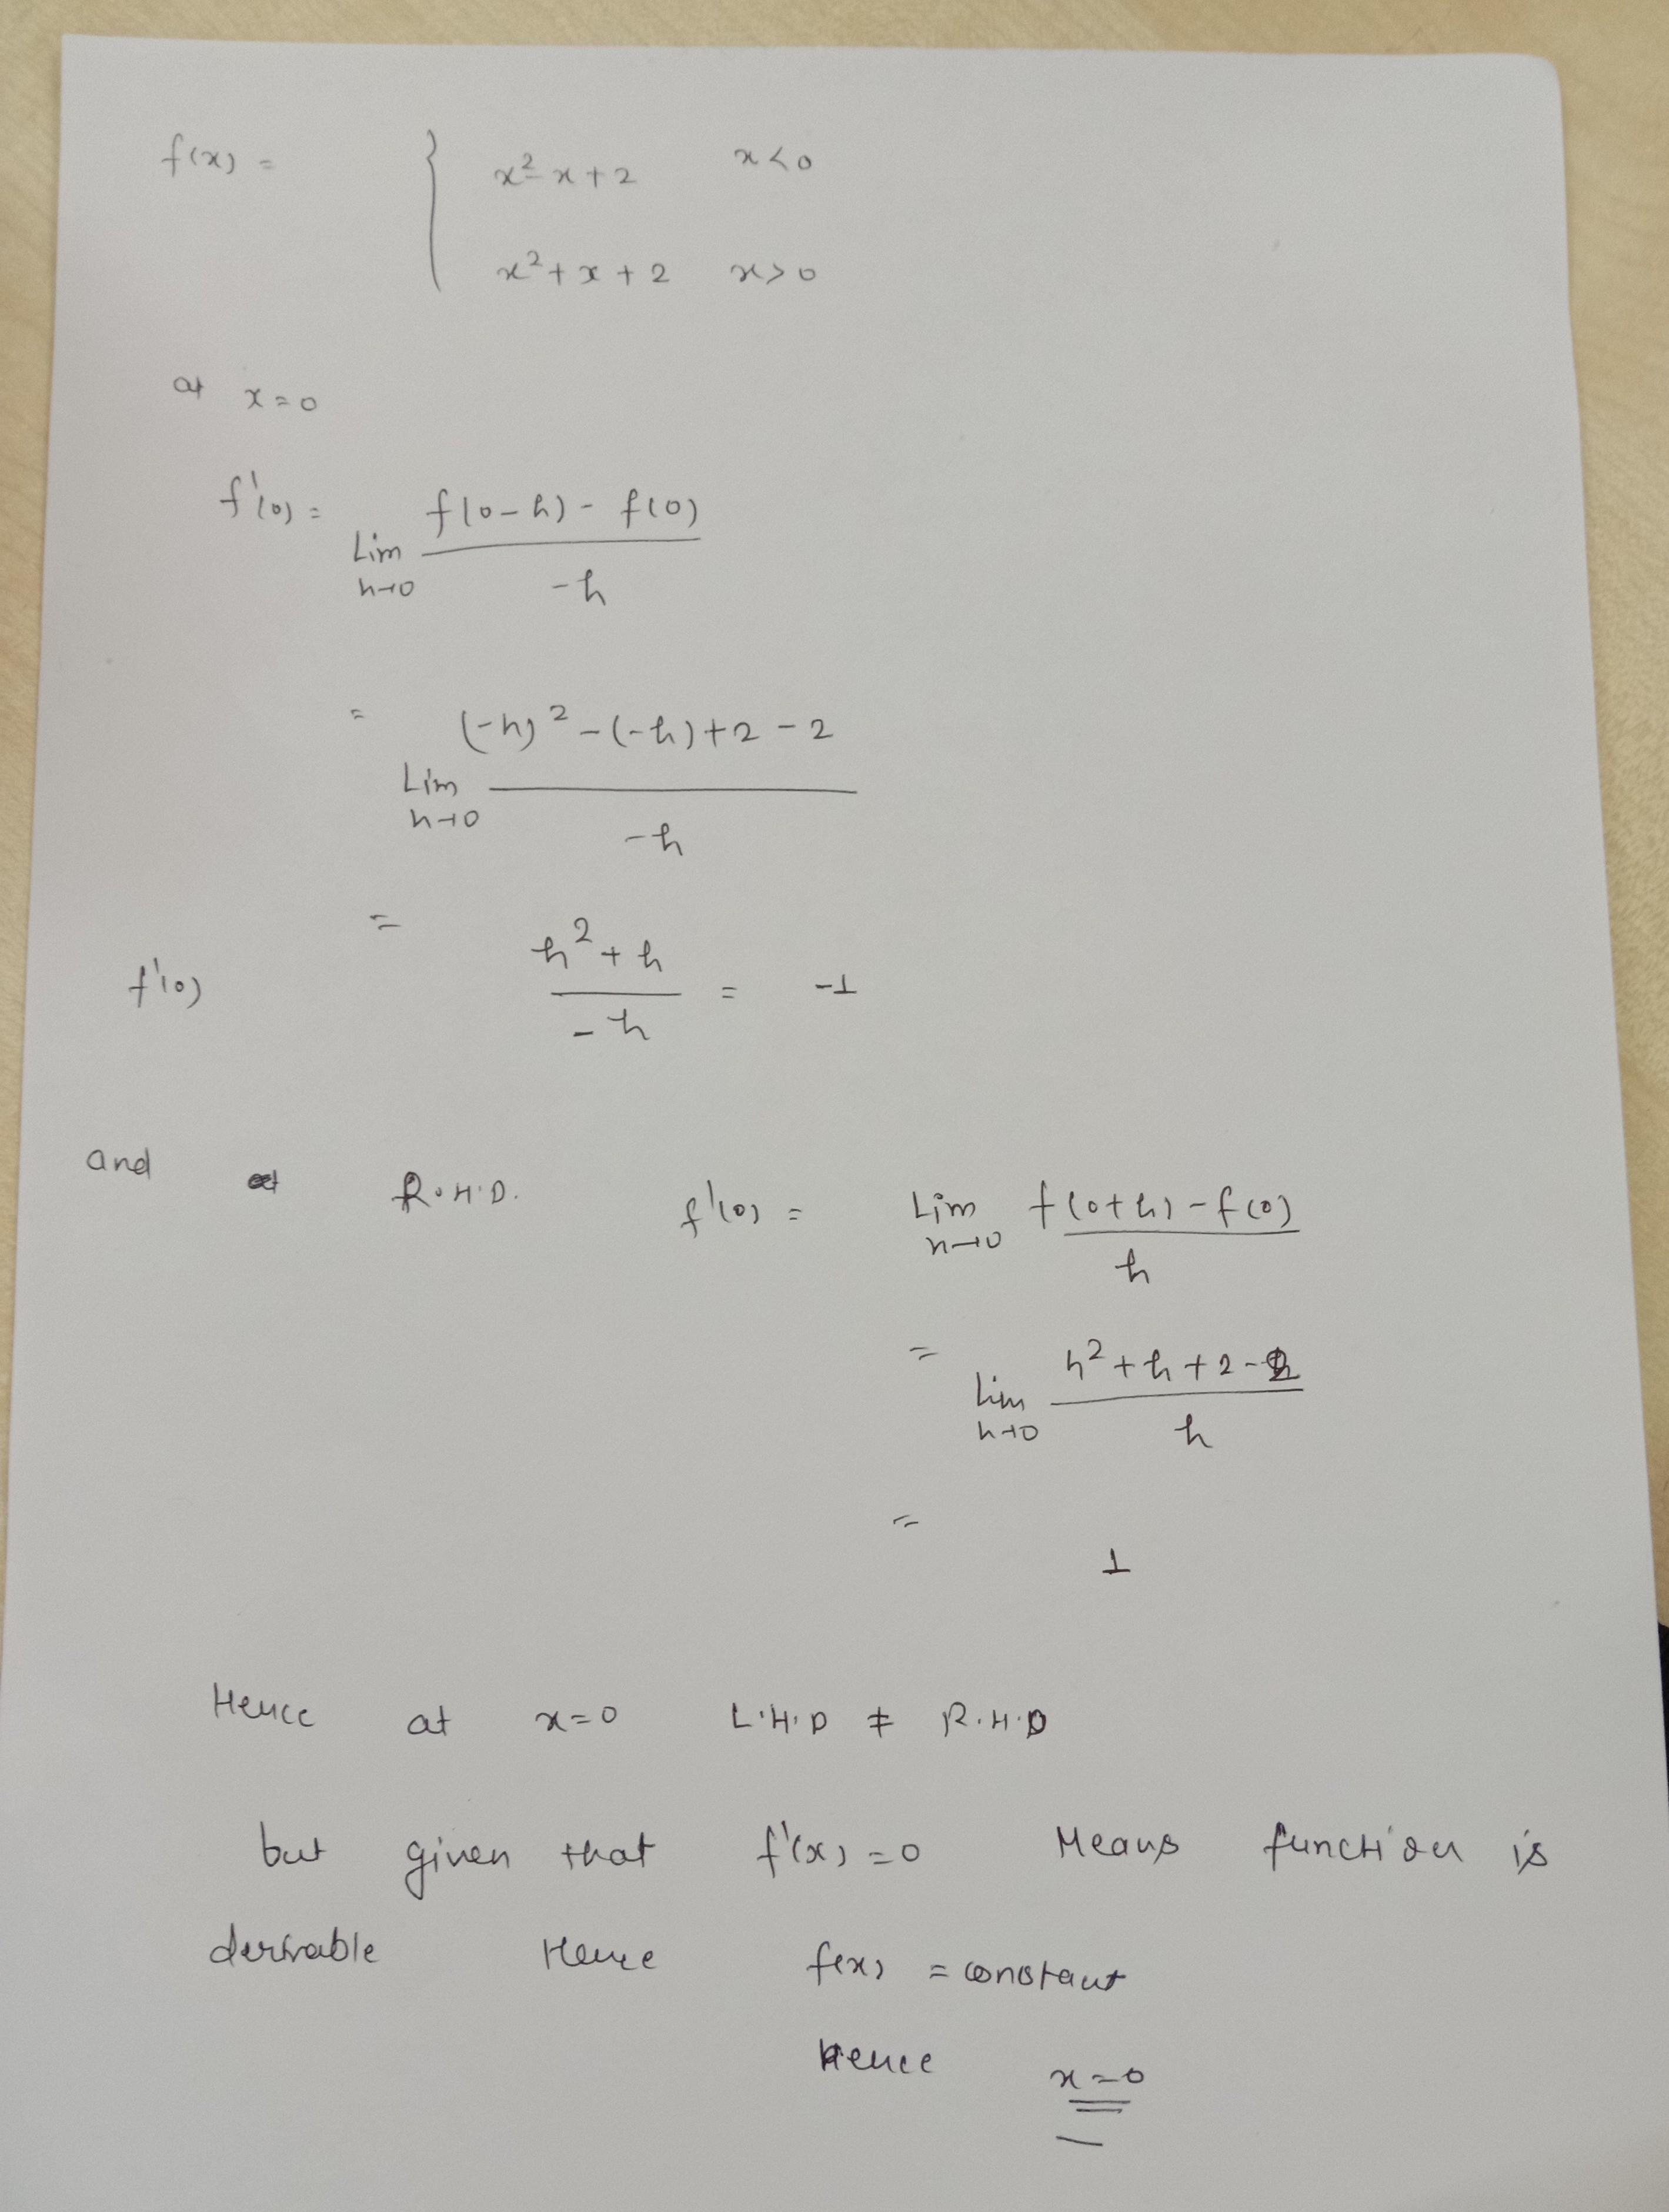 f(x) = { x² - x + 2 x < 0
x² + x + 2 x > 0
at x = 0
f'(0) = Lim h→0 f(0-h) - f(0) / -h
= Lim h→0 (-h)² - (-h) + 2 - 2 / -h
f'(0) = h² + h / -h = -1
and at R.H.D. f'(0) = Lim h→0 f(0+h) - f(0) / h
= Lim h→0 h² + h + 2 - 2 / h
= 1
Hence at x=0 L.H.D ≠ R.H.D
but given that f'(x) = 0 Means function is
derivable Hence f(x) = constant
Hence x = 0